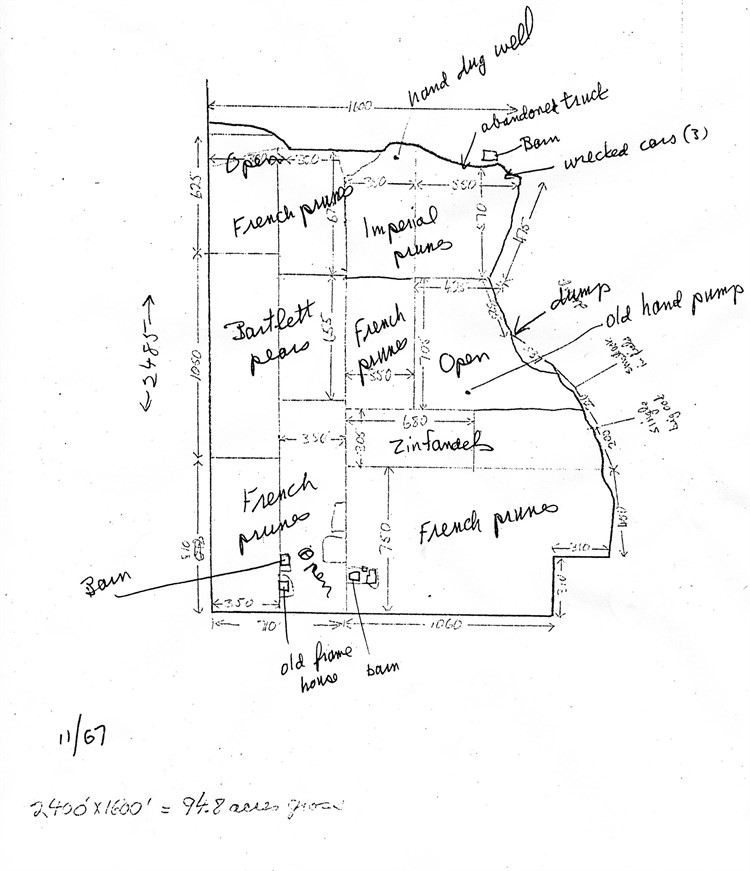 hand dug well
1600
abandoned truck
Barn
wrecked cars (3)
Open
300
350
550
625
French prunes
Imperial
prunes
570
475
435
dump
old hand pump
Bartlett
pears
655
French
prunes
705
Open
350
←2485→
1060
single
big oak
200
680
305
Zinfandel
350
French
prunes
French prunes
750
310
310
Open
Barn
350
1060
old frame
house
barn
11/67
2400' X 1600' = 94.8 acres gross